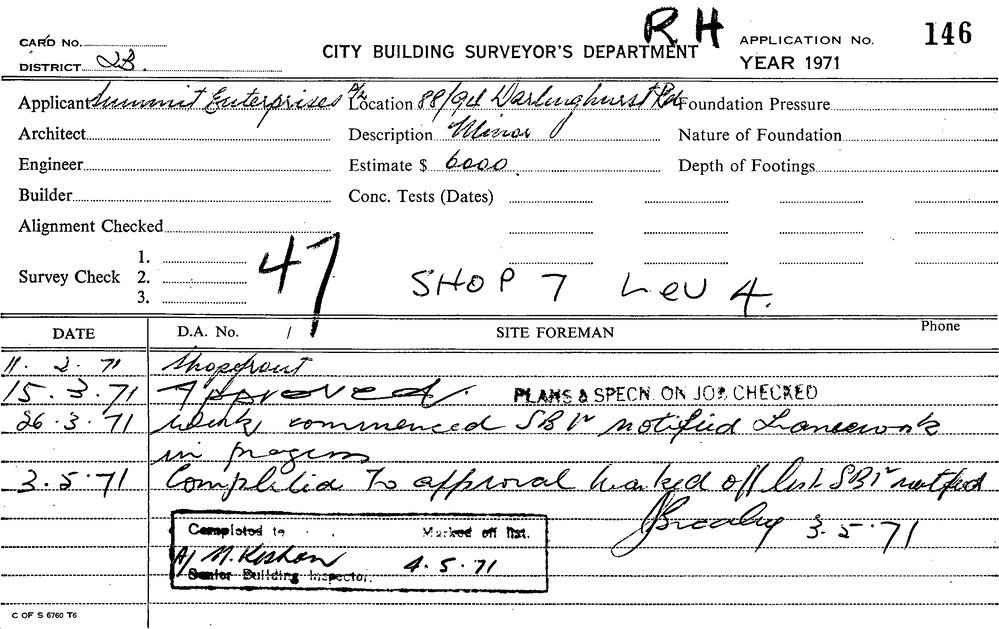 RH
CARD NO.
CITY BUILDING SURVEYOR'S DEPARTMENT
APPLICATION No. 146
DISTRICT 2B.
YEAR 1971
Applicant Summit Enterprises P/L Location 88/94 Darlinghurst Rd Foundation Pressure
Architect Description Minor Nature of Foundation
Engineer Estimate $ 6000 Depth of Footings
Builder Conc. Tests (Dates)
Alignment Checked
Survey Check 1.
2.
3.
47
SHOP 7 Lev 4.
DATE D.A. No. / SITE FOREMAN Phone
11. 2. 71 Shopfront
15. 3. 71 Approved. PLANS & SPECN. ON JOB CHECKED
26. 3. 71 Work commenced SBIr notified Framework
in progress
3. 5. 71 Completed To approval marked off list SBIr notified
3. 5. 71
Completed to Marked off list.
A/ 4. 5. 71
Senior Building Inspector.
C OF S 6760 T6